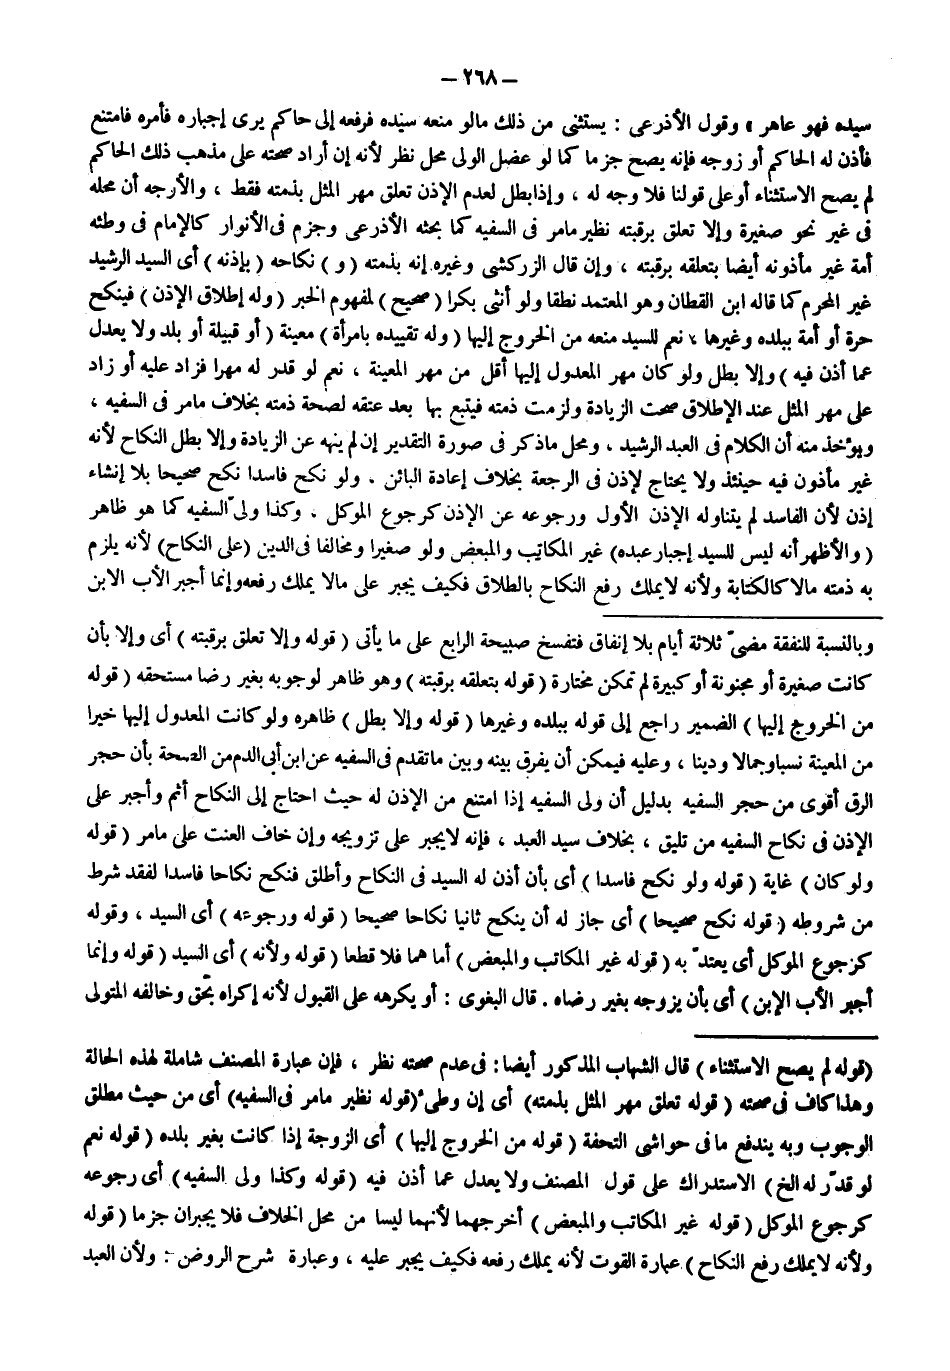 — ٢٦٨ —
سيده فهو عاهر » وقول الأذرعى : يستثنى من ذلك مالو منعه سيده فرفعه إلى حاكم يرى إجباره فأمره فامتنع
فأذن له الحاكم أو زوجه فإنه يصح جزما كما لو عضل الولى محل نظر لأنه إن أراد صحته على مذهب ذلك الحاكم
لم يصح الاستثناء أوعلى قولنا فلا وجه له ، وإذابطل لعدم الإذن تعلق مهر المثل بذمته فقط ، والأرجه أن محله
فى غير نحو صغيرة وإلا تعلق برقبته نظير مامر فى السفيه كما بحثه الأذرعى وجزم فى الأنوار كالإمام فى وطئه
أمة غير مأذونه أيضا بتعلقه برقبته ، وإن قال الزركشى وغيره إنه بذمته ( و ) نكاحه ( بإذنه ) أى السيد الرشيد
غير المحرم كما قاله ابن القطان وهو المعتمد نطقا ولو أنثى بكرا ( صحيح ) لمفهوم الخبر ( وله إطلاق الإذن ) فينكح
حرة أو أمة ببلده وغيرها ، نعم للسيد منعه من الخروج إليها ( وله تقييده بامرأة ) معينة ( أو قبيلة أو بلد ولا يعدل
عما أذن فيه ) وإلا بطل ولو كان مهر المعدول إليها أقل من مهر المعينة ، نعم لو قدر له مهرا فزاد عليه أو زاد
على مهر المثل عند الإطلاق صحت الزيادة ولزمت ذمته فيتبع بها بعد عتقه لصحة ذمته بخلاف مامر فى السفيه ،
ويؤخذ منه أن الكلام فى العبد الرشيد ، ومحل ماذكر فى صورة التقدير إن لم ينهه عن الزيادة وإلا بطل النكاح لأنه
غير مأذون فيه حينئذ ولا يحتاج لإذن فى الرجعة بخلاف إعادة البائن . ولو نكح فاسدا نكح صحيحا بلا إنشاء
إذن لأن الفاسد لم يتناوله الإذن الأول ورجوعه عن الإذن كرجوع الموكل . وكذا ولىّ السفيه كما هو ظاهر
( والأظهر أنه ليس للسيد إجبار عبده) غير المكاتب والمبعض ولو صغيرا ومخالفا فى الدين (على النكاح) لأنه يلزم
به ذمته مالا كالكتابة ولأنه لايملك رفع النكاح بالطلاق فكيف يجبر على مالا يملك رفعه وإنما أجبر الأب الابن
وبالنسبة للنفقة مضىّ ثلاثة أيام بلا إنفاق فتفسخ صبيحة الرابع على ما يأتى ( قوله وإلا تعلق برقبته ) أى وإلا بأن
كانت صغيرة أو مجنونة أو كبيرة لم تمكن مختارة ( قوله بتعلقه برقبته ) وهو ظاهر لوجوبه بغير رضا مستحقه ( قوله
من الخروج إليها ) الضمير راجع إلى قوله ببلده وغيرها ( قوله وإلا بطل ) ظاهره ولو كانت المعدول إليها خيرا
من المعينة نسبا وجمالا ودينا ، وعليه فيمكن أن يفرق بينه وبين ماتقدم فى السفيه عن ابن أبى الدم من الصحة بأن حجر
الرق أقوى من حجر السفيه بدليل أن ولى السفيه إذا امتنع من الإذن له حيث احتاج إلى النكاح أثم وأجبر على
الإذن فى نكاح السفيه من تليق ، بخلاف سيد العبد ، فإنه لايجبر على تزويجه وإن خاف العنت على مامر ( قوله
ولو كان ) غاية ( قوله ولو نكح فاسدا ) أى بأن أذن له السيد فى النكاح وأطلق فنكح نكاحا فاسدا لفقد شرط
من شروطه ( قوله نكح صحيحا ) أى جاز له أن ينكح ثانيا نكاحا صحيحا ( قوله ورجوعه ) أى السيد ، وقوله
كرجوع الموكل أى يعتدّ به ( قوله غير المكاتب والمبعض ) أما هما فلا قطعا ( قوله ولأنه ) أى السيد ( قوله وإنما
أجبر الأب الإبن ) أى بأن يزوجه بغير رضاه . قال البغوى : أو يكرهه على القبول لأنه إكراه بحّق وخالفه المتولى
(قوله لم يصح الاستثناء ) قال الشهاب المذكور أيضا : فى عدم صحته نظر ، فإن عبارة المصنف شاملة لهذه الحالة
وهذا كاف فى صحته ( قوله تعلق مهر المثل بذمته) أى إن وطئ (قوله نظير مامر فى السفيه) أى من حيث مطلق
الوجوب وبه يندفع ما فى حواشى التحفة ( قوله من الخروج إليها ) أى الزوجة إذا كانت بغير بلده ( قوله نعم
لو قدّر له الخ ) الاستدراك على قول المصنف ولا يعدل عما أذن فيه (قوله وكذا ولى السفيه) أى رجوعه
كرجوع الموكل ( قوله غير المكاتب والمبعض ) أخرجهما لأنهما ليسا من محل الخلاف فلا يجبران جزما ( قوله
ولأنه لايملك رفع النكاح ) عبارة القوت لأنه يملك رفعه فكيف يجبر عليه ، وعبارة شرح الروض : ولأن العبد